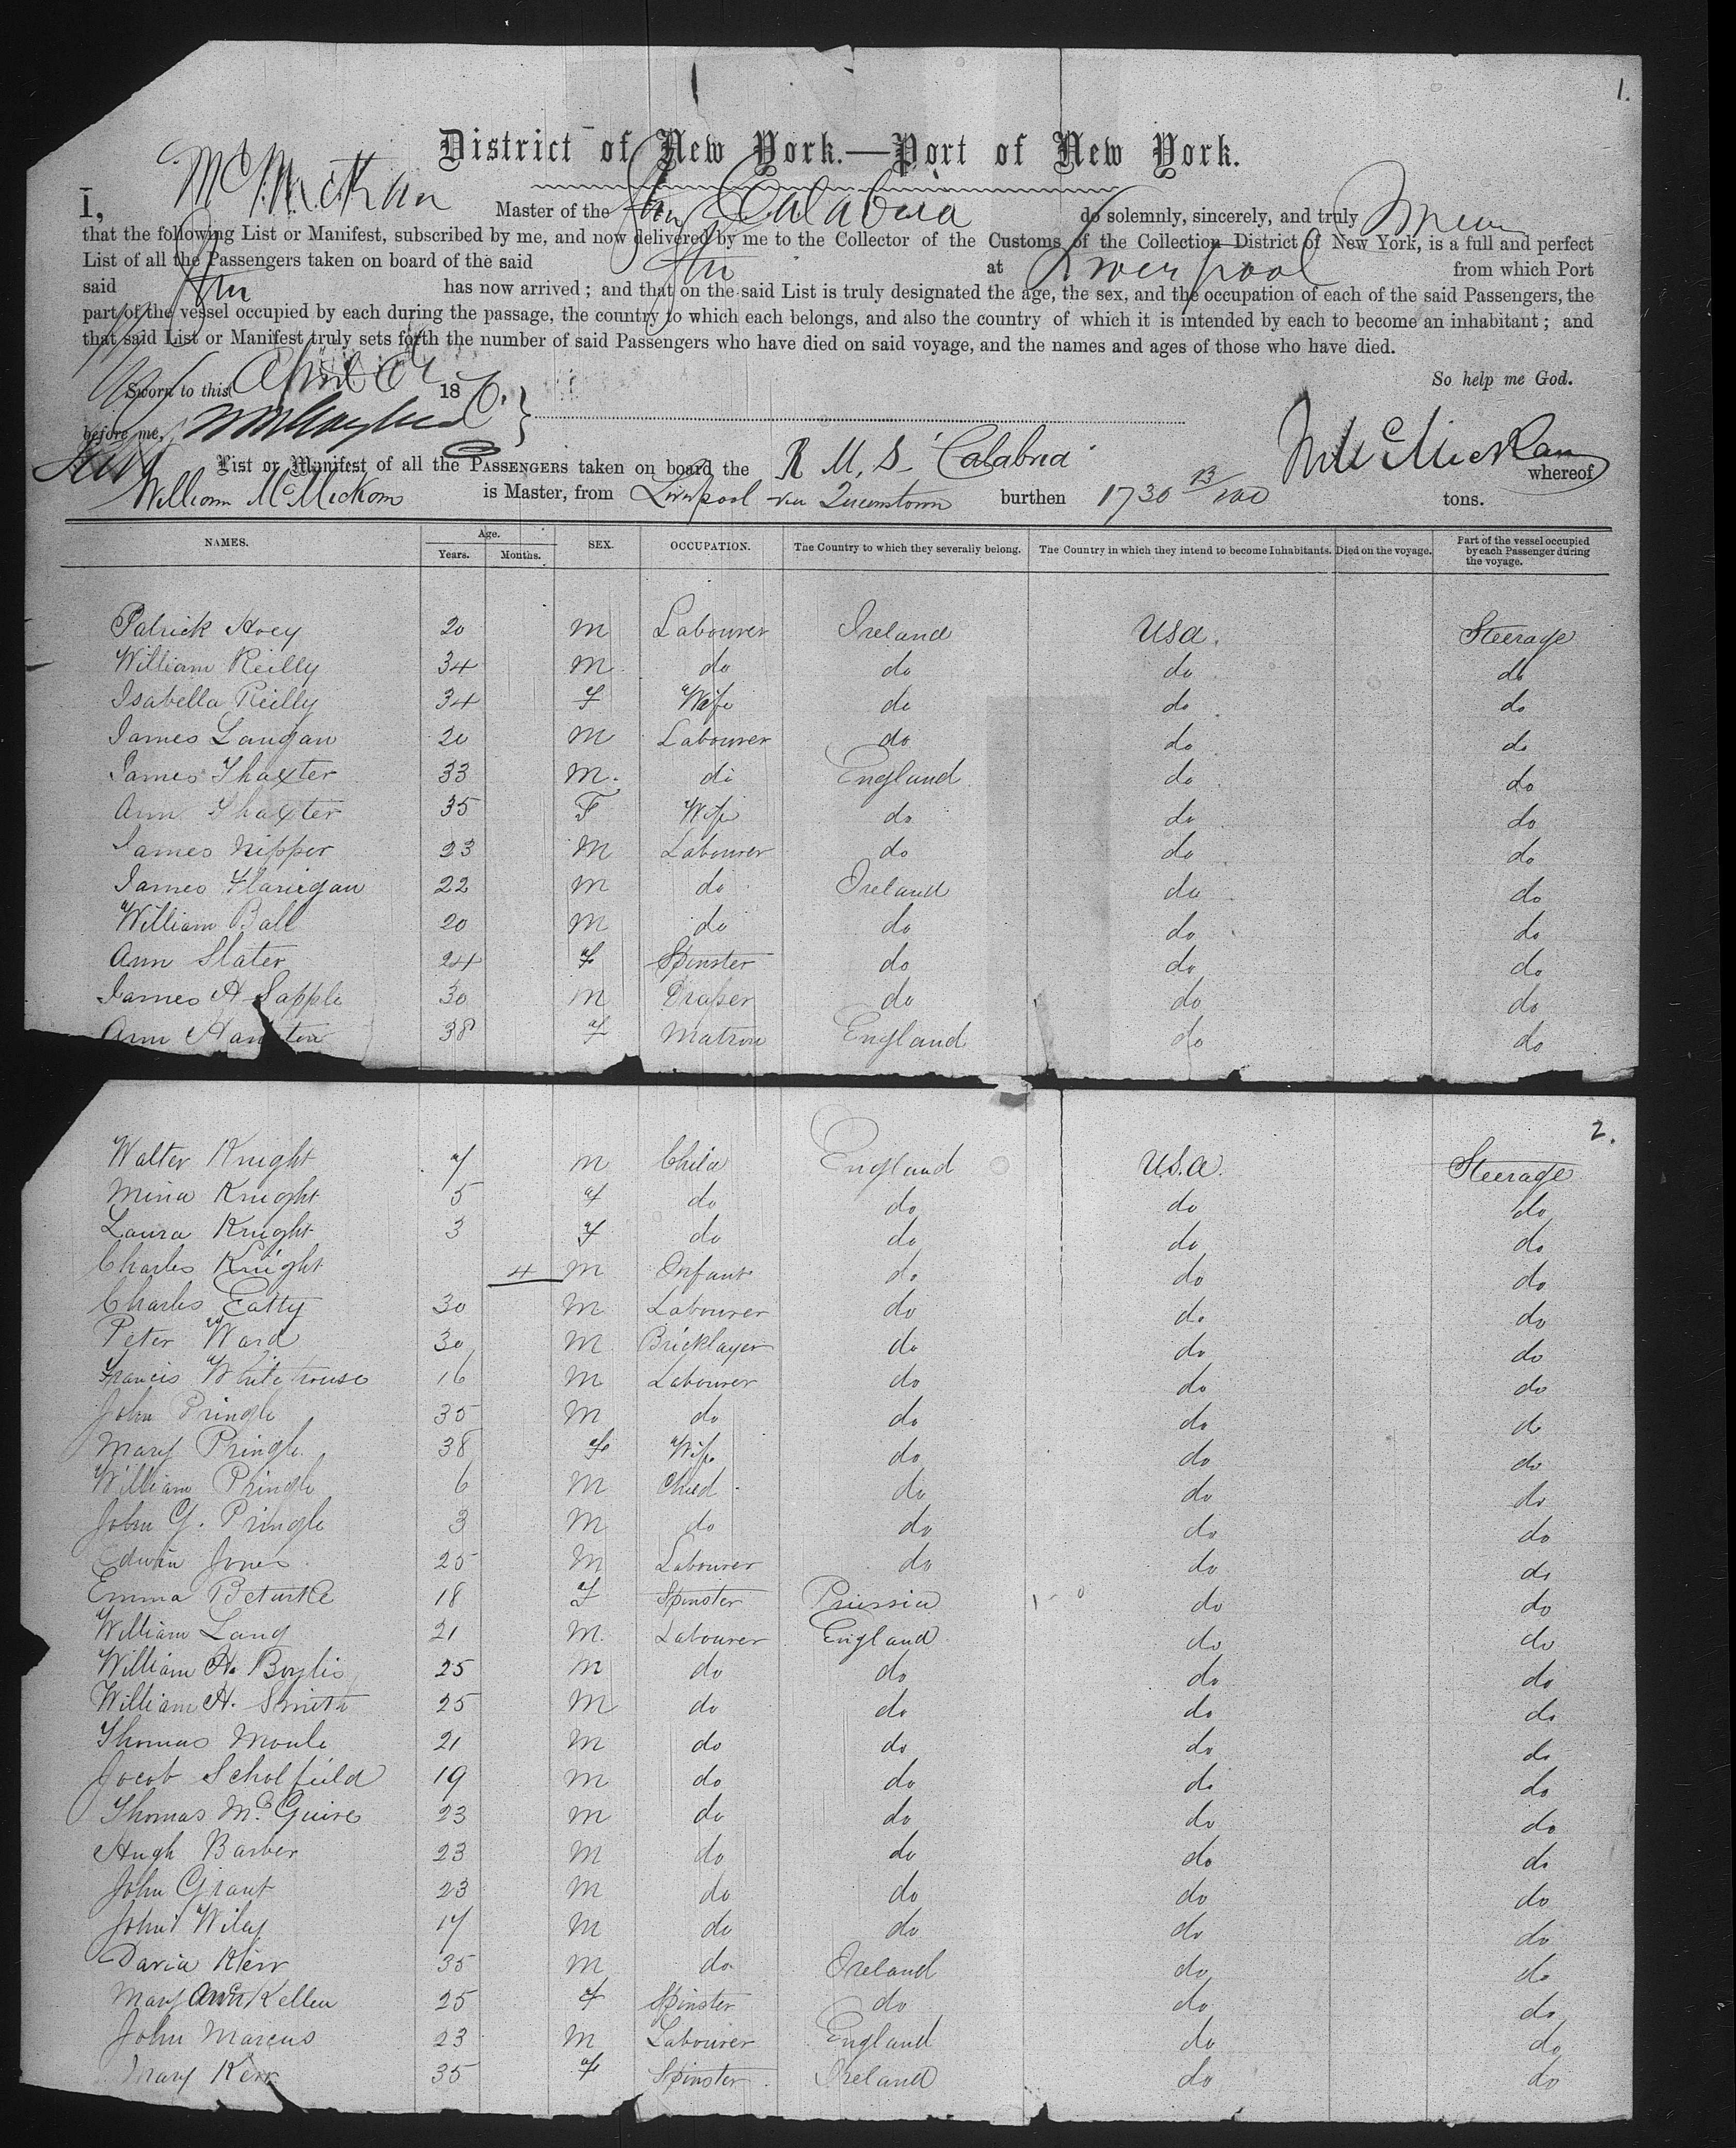 1.
District of New York.—Port of New York.
I, McMickan Master of the Str Calabria do solemnly, sincerely, and truly swear
that the following List or Manifest, subscribed by me, and now delivered by me to the Collector of the Customs of the Collection District of New York, is a full and perfect
List of all the Passengers taken on board of the said Str at Liverpool from which Port
said Str has now arrived; and that on the said List is truly designated the age, the sex, and the occupation of each of the said Passengers, the
part of the vessel occupied by each during the passage, the country to which each belongs, and also the country of which it is intended by each to become an inhabitant; and
that said List or Manifest truly sets forth the number of said Passengers who have died on said voyage, and the names and ages of those who have died.
So help me God.
Sworn to this April 18
before me,
McMickan
List or Manifest of all the PASSENGERS taken on board the R M S "Calabria" whereof
William McMickan is Master, from Liverpool via Queenstown burthen 1730 13/100 tons.
NAMES. Age. Years. Months. SEX. OCCUPATION. The Country to which they severally belong. The Country in which they intend to become Inhabitants. Died on the voyage. Part of the vessel occupied by each Passenger during the voyage.
Patrick Hoey 20 M Labourer Ireland USA. Steerage
William Reilly 34 M do do do do
Isabella Reilly 34 F Wife do do do
James Langan 20 M Labourer do do do
James Thaxter 33 M. do England do do
Ann Thaxter 35 F Wife do do do
James Nipper 23 M Labourer do do do
James Flanigan 22 M do Ireland do do
William Ball 20 M do do do do
Ann Slater 24 F Spinster do do do
James A Sapple 30 M Draper do do do
Ann 38 F Matron England do do
2.
Walter Knight 7 M Child England U.S.A. Steerage
Mina Knight 5 F do do do do
Laura Knight 3 F do do do do
Charles Knight 4 M Infant do do do
Charles Eatty 30 M Labourer do do do
Peter Ward 30 M Bricklayer do do do
Francis Whitehouse 16 M Labourer do do do
John Pringle 35 M do do do do
Mary Pringle 38 F Wife do do do
William Pringle 6 M Child do do do
John G. Pringle 3 M do do do do
Edwin Jones 25 M Labourer do do do
Emma 18 F Spinster Prussia do do
William Lang 21 M. Labourer England do do
William H. Boylis 25 M do do do do
William H. Smith 25 M do do do do
Thomas Moule 21 M do do do do
Jacob Scholfield 19 M do do do do
Thomas McGuire 23 M do do do do
Hugh Barber 23 M do do do do
John Grant 23 M do do do do
John Wiley 17 M do do do do
David Kerr 35 M do Ireland do do
Mary Ann Kellen 25 F Spinster do do do
John Marcus 23 M Labourer England do do
Mary Kerr 35 F Spinster Ireland do do